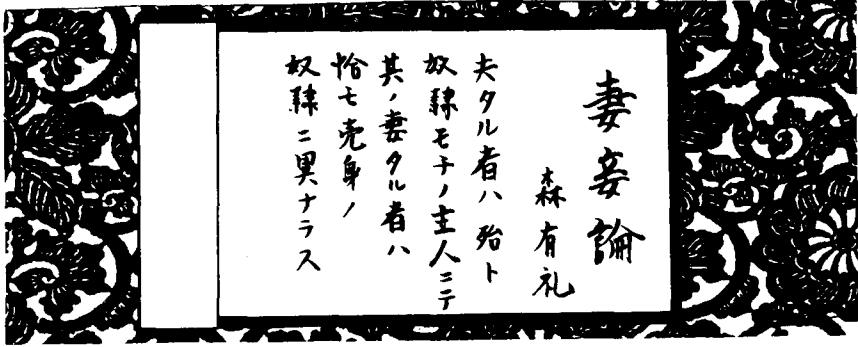 妻妾論
森有礼
夫タル者ハ殆ト
奴隷モチノ主人ニテ
其ノ妻タル者ハ
恰モ売身ノ
奴隷ニ異ナラス